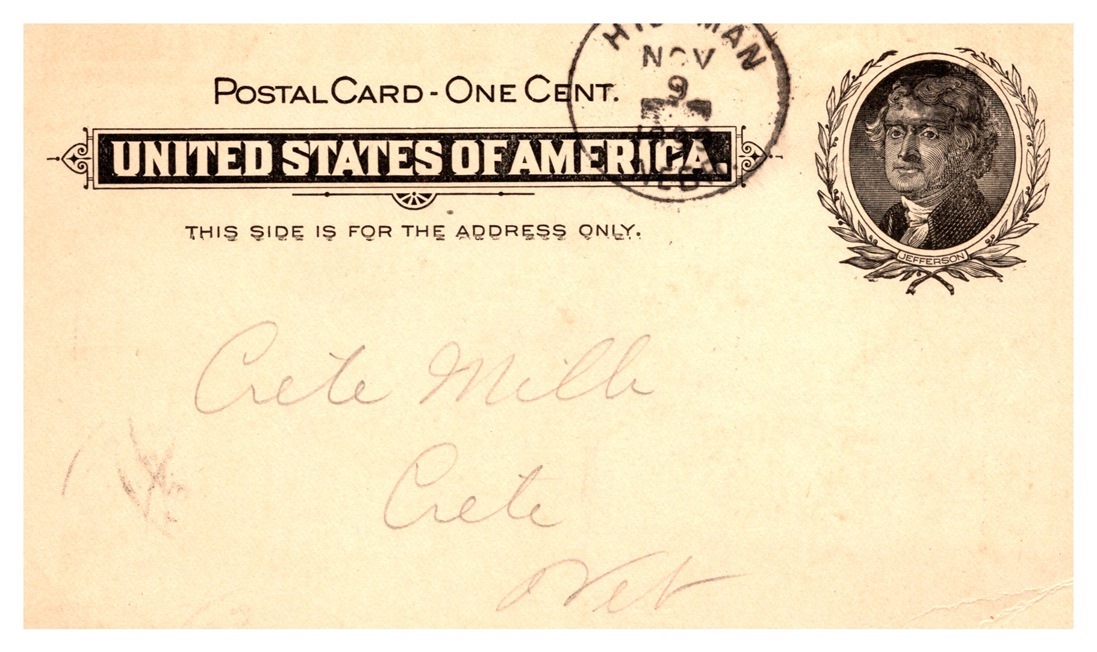 MAN
NOV
9
POSTAL CARD - ONE CENT.
UNITED STATES OF AMERICA.
THIS SIDE IS FOR THE ADDRESS ONLY.
JEFFERSON
Crete Mills
Crete
Neb